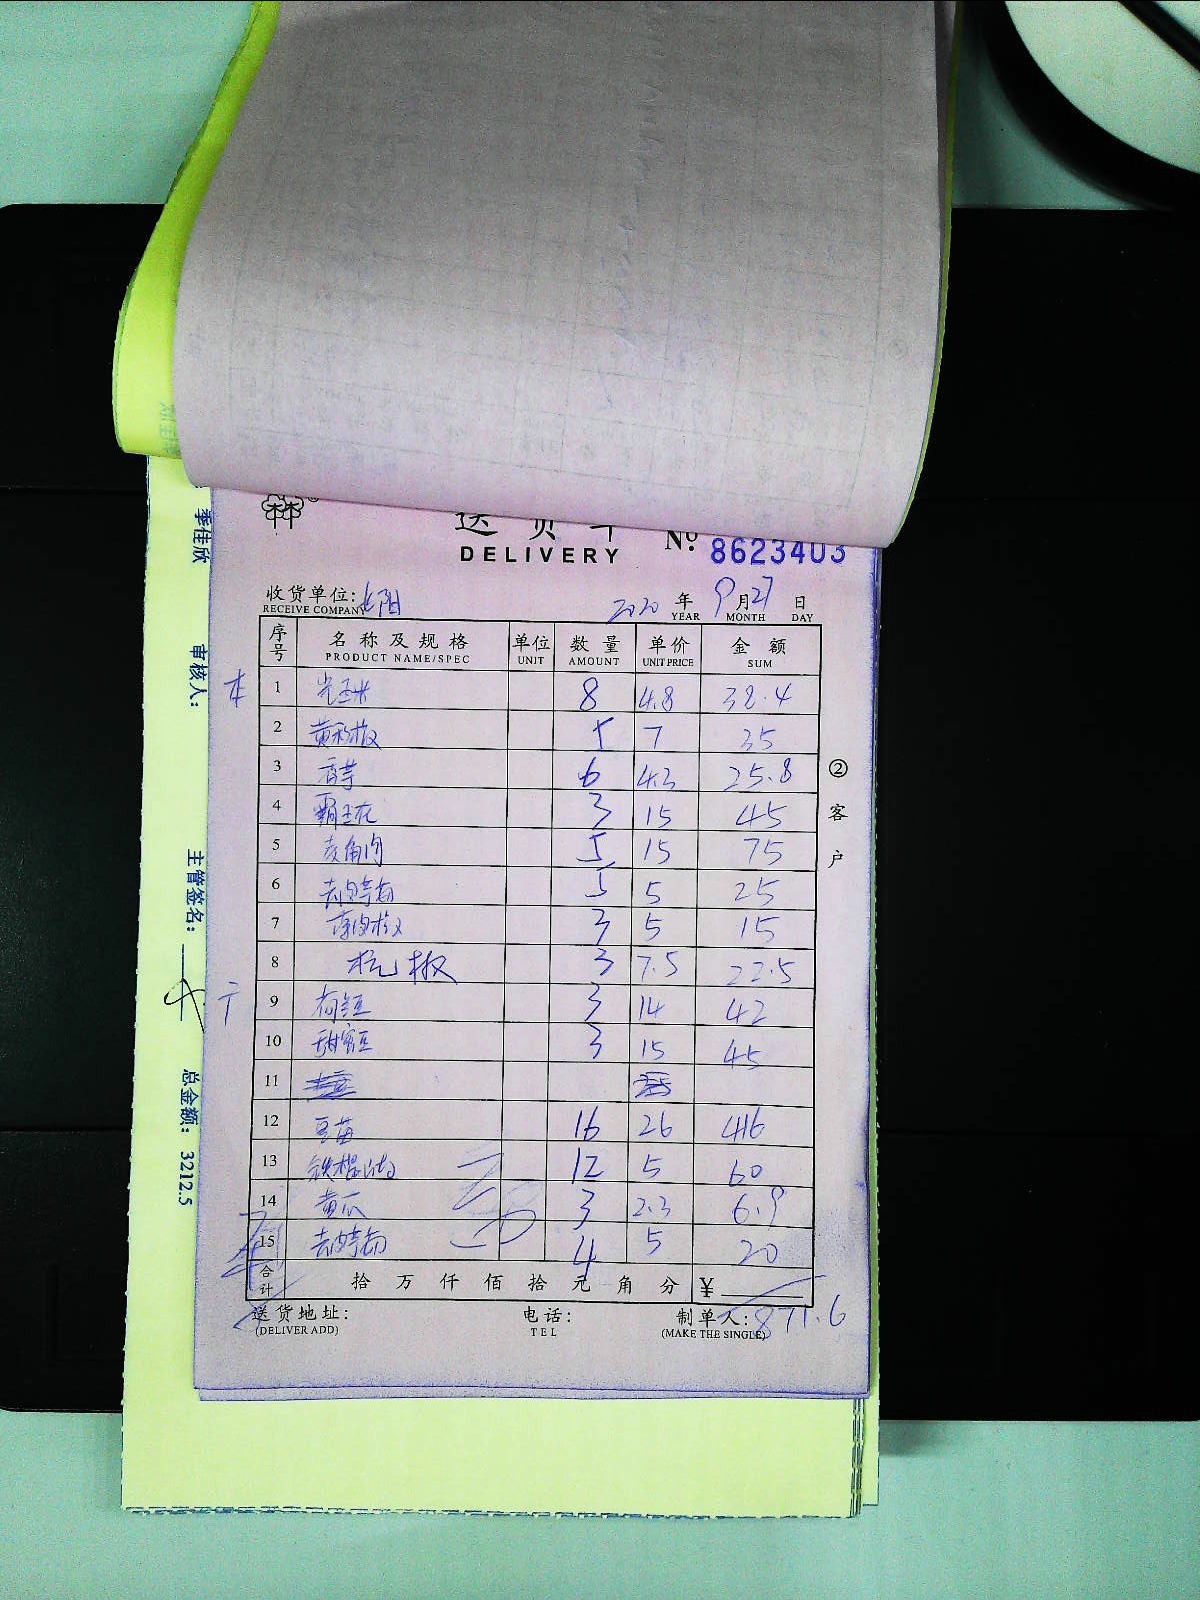 送货单
DELIVERY
No. 8623403
收货单位:
RECEIVE COMPANY
2020 年 9 月 27 日
YEAR MONTH DAY
序号 名称及规格 单位 数量 单价 金额
PRODUCT NAME/SPEC UNIT AMOUNT UNIT PRICE SUM
1 光玉米 8 4.8 38.4
2 黄彩椒 5 7 35
3 香芋 6 4.3 25.8
4 霸王花 3 15 45
5 菱角肉 5 15 75
6 去皮莴笋 5 5 25
7 3 5 15
8 杭椒 3 7.5 22.5
9 荷兰豆 3 14 42
10 甜蜜豆 3 15 45
11
12 豆苗 16 26 416
13 铁棍山药 12 5 60
14 黄瓜 3 2.3 6.9
15 4 5 20
合计 拾 万 仟 佰 拾 元 角 分 ¥
871.6
送货地址:
(DELIVER ADD)
电话:
TEL
制单人:
(MAKE THE SINGLE)
② 客户
季佳欣
审核人:
主管签名:
总金额: 3212.5